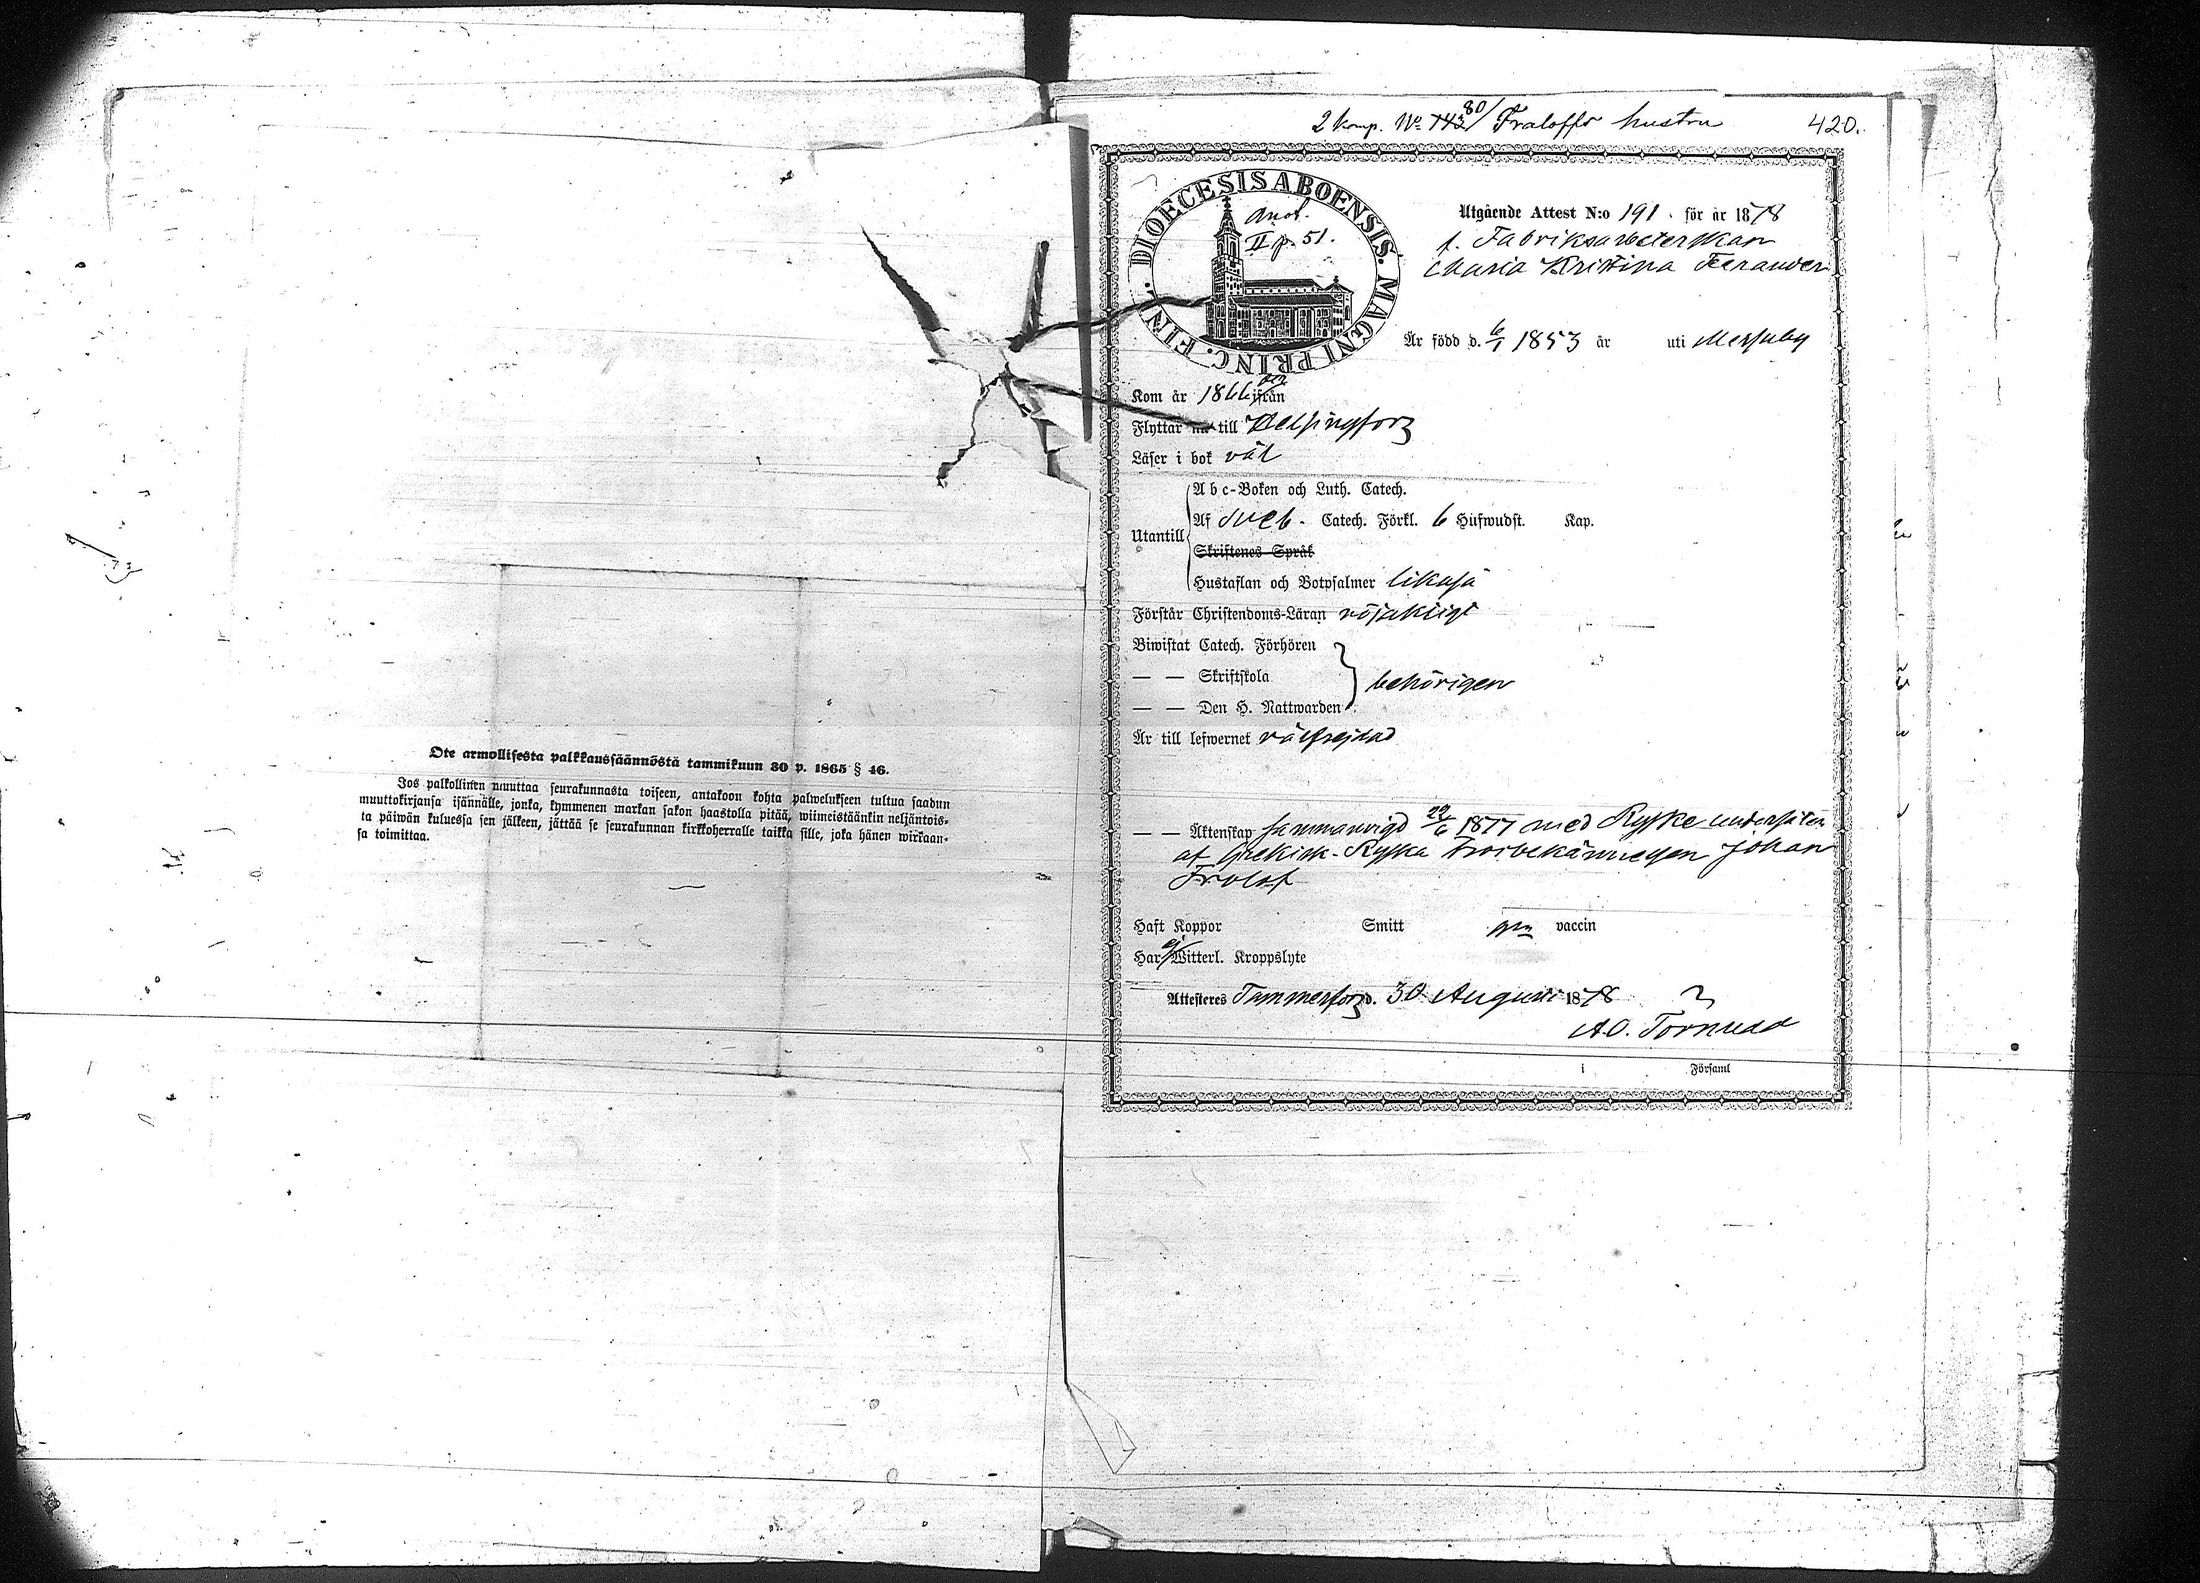 Ote armollisesta palkkaussäännöstä tammikuun 30 p. 1865 § 46.
Jos palkollinen muuttaa seurakunnasta toiseen, antakoon kohta palwelukseen tultua saadun
muuttokirjansa isännälle, jonka, kymmenen markan sakon haastolla pitää, wiimeistäänkin neljäntois-
ta päiwän kuluessa sen jälkeen, jättää se seurakunnan kirkkoherralle taikka sille, joka hänen wirkaan-
sa toimittaa.
2 komp. No 80/ Fraloffs hustru 420.
DIOECESIS ABOENSIS. MAGNI PRINC. FIN.
Anot.
II p. 51.
Utgående Attest N:o 191. för år 1878
f. Fabriksarbeterskan
Maria Kristina
Är född d. 6/1 1853 år uti Messuby
Kom år 1866 ifrån
Flyttar nu till Helsingfors
Läser i bok väl
Utantill
Abc-Boken och Luth. Catech.
Af Sveb. Catech. Förkl. 6 Hufwudst. Kap.
Skriftenes Språk
Hustaflan och Botpsalmer likaså
Förstår Christendoms-Läran nöjaktigt
Biwistat Catech. Förhören
— — Skriftskola
behörigen
— — Den H. Nattwarden
Är till lefwernet välfrejdad
— — Äktenskap sammanvigd 22/6 1877 med Ryske undersåten
af Grekisk-Ryska trosbekännelsen Johan
Frolof
Haft Koppor Smitt gm vaccin
Har ej Witterl. Kroppslyte
Attesteres Tammerfors d. 30 Augusti 1878
A.O. Törnudd
i Församl